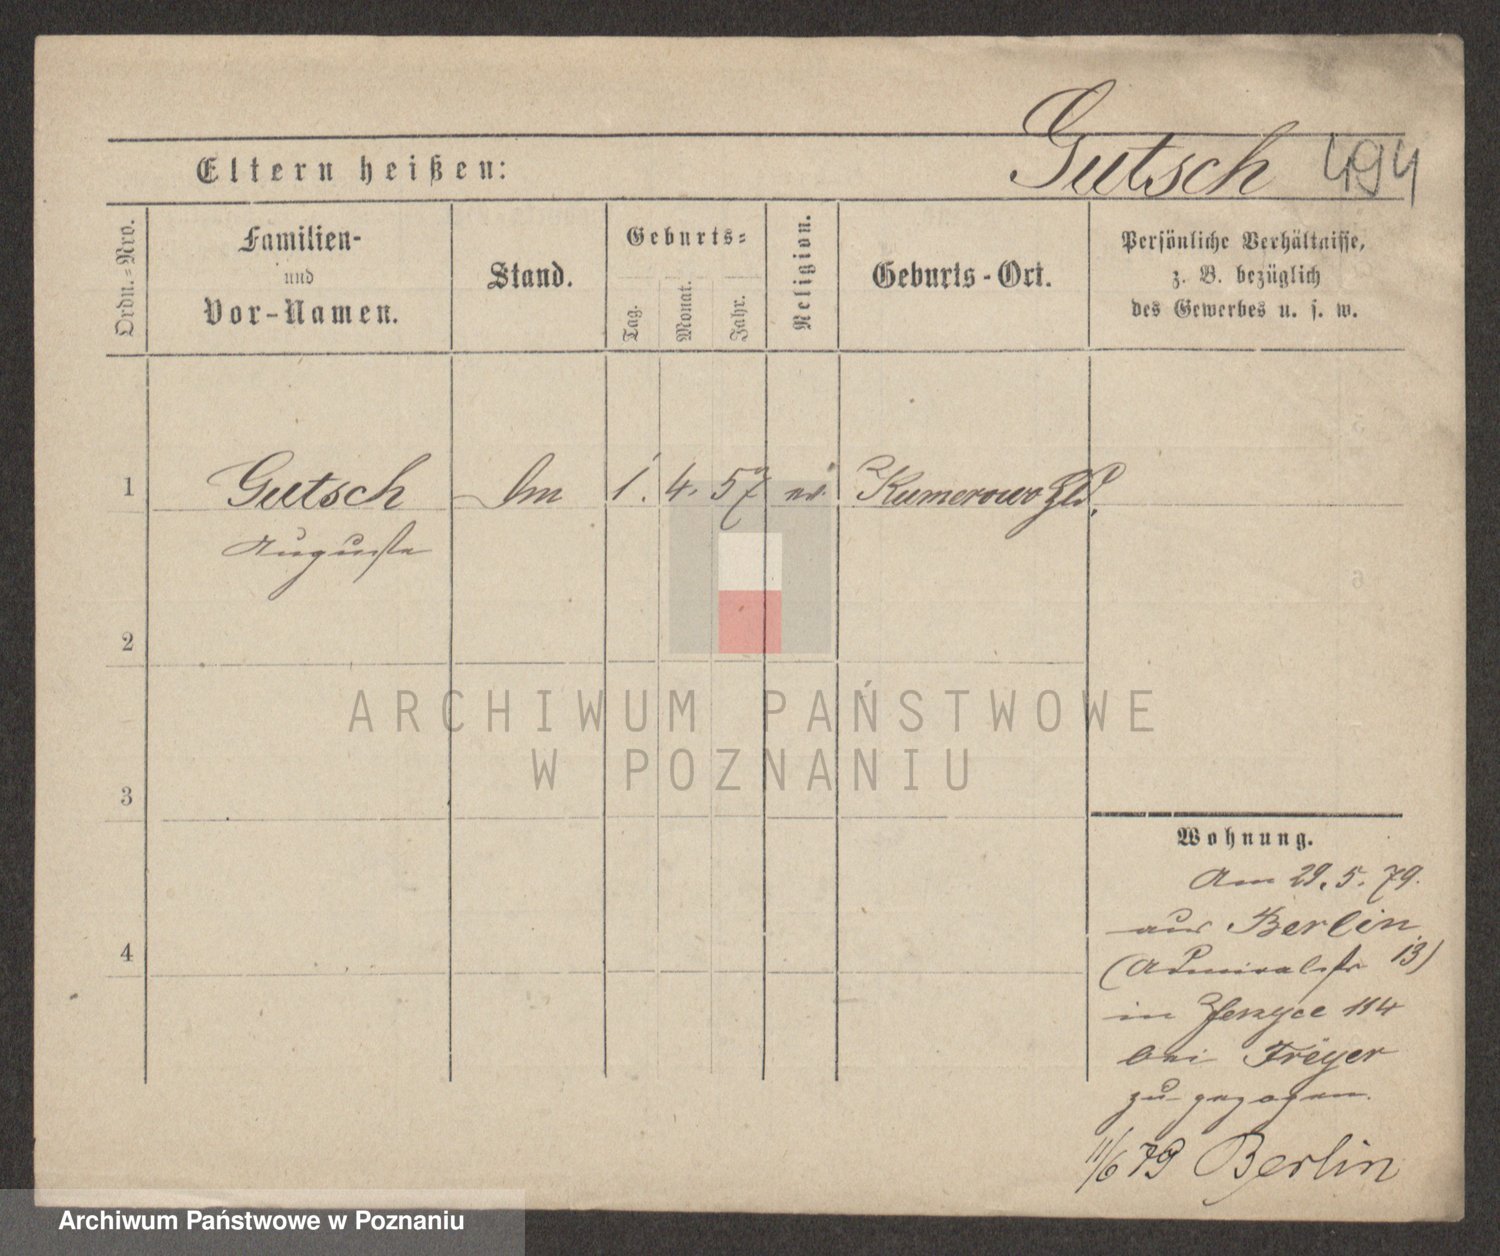 Gutsch 494
Eltern heißen:
Ordn.-Nro.
Familien-
und
Vor-Namen.
Stand.
Geburts-
Tag.
Monat.
Jahr.
Religion.
Geburts-Ort.
Persönliche Verhältnisse,
z. B. bezüglich
des Gewerbes u. s. w.
1 Gutsch 1. 4. 57 Kumerowo
Auguste
2
3
4
ARCHIWUM PAŃSTWOWE
W POZNANIU
Wohnung.
Am 29. 5. 79.
aus Berlin
(Admiralstr 13)
in Jerzyce 114
bei Treyer
zugezogen.
11/6 79 Berlin
Archiwum Państwowe w Poznaniu